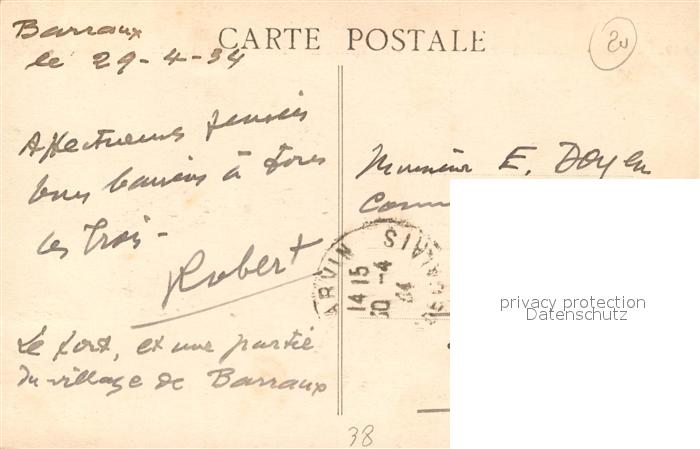 Barraux
le 29-4-34
CARTE POSTALE
20
Affectueuses pensées
bons baisers à tous
les trois -
Robert
Le fort, et une partie
du village de Barraux
Monsieur E. Doyen
ARVIN
14 15
30 -4
34
CALAIS
privacy protection
Datenschutz
38